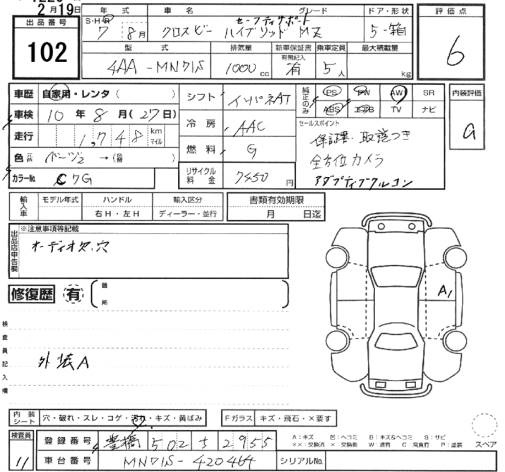 2月19日
出品番号
102
年式
車名
グレード
ドア・形状
S・H
7 8月
クロスビー
セーフティサポート
ハイブリッド MZ
5-箱
型式
排気量
新車保証書
有無記入
乗車定員
最大積載量
4AA-MN71S
1000cc
有
5人
kg
評価点
6
車歴 自家用・レンタ ( )
車検 10年8月(27日)
走行 1,748 km マイル
色 ベージュ2 →( )
カラーNo. C7G
シフト インパネAT
冷房 AAC
燃料 G
リサイクル料金 7450円
純正のみ
PS PW AW SR
ABS エアB TV ナビ
セールスポイント
保証書・取説つき
全方位カメラ
アダプティブクルコン
内装評価
a
輸入車
モデル年式
ハンドル
右H・左H
輸入区分
ディーラー・並行
書類有効期限
月 日迄
出品店申告欄
※注意事項等記載
オーディオ欠、穴
修復歴 有 箇所
検査員記入欄
外装A
A1
内装シート
穴・破れ・スレ・コゲ・汚れ・キズ・黄ばみ
Fガラス キズ・飛石・×要す
検査員
11
登録番号 豊橋 502 す 2955
車台番号 MN71S-420464
シリアルNo.
A:キズ E:ヘコミ B:キズ&ヘコミ S:サビ
スペア